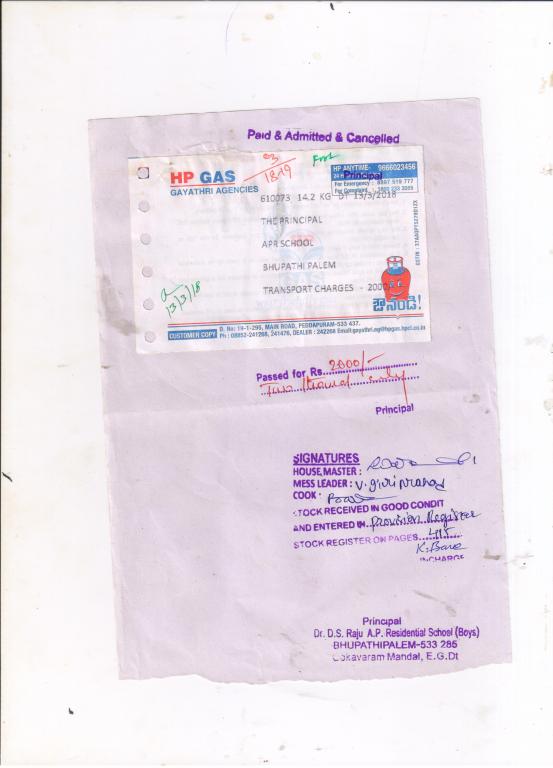 Paid & Admitted & Cancelled
03
1819
HP GAS
GAYATHRI AGENCIES
HP ANYTIME- 9666023456
Principal
For Emergency :
For Complaint :
610073 14.2 KG DT 13/3/2018
THE PRINCIPAL
APR SCHOOL
BHUPATHI PALEM
TRANSPORT CHARGES - 2000
13/3/18
ఔనండి!
CUSTOMER COPY
D. No: 19-1-295, MAIN ROAD, PEDDAPURAM-533 437.
Ph : 08852-241268, 241476, DEALER : 242268 Email:gayathri.ag@hpgas.hpcl.co.in
Passed for Rs. 2000/-
Two thousand only
Principal
SIGNATURES
HOUSE, MASTER :
MESS LEADER : V.
COOK :
STOCK RECEIVED IN GOOD CONDIT
AND ENTERED IN Provision Register
STOCK REGISTER ON PAGES
INCHARGE
Principal
Dr. D.S. Raju A.P. Residential School (Boys)
BHUPATHIPALEM-533 285
Gokavaram Mandal, E.G.Dt